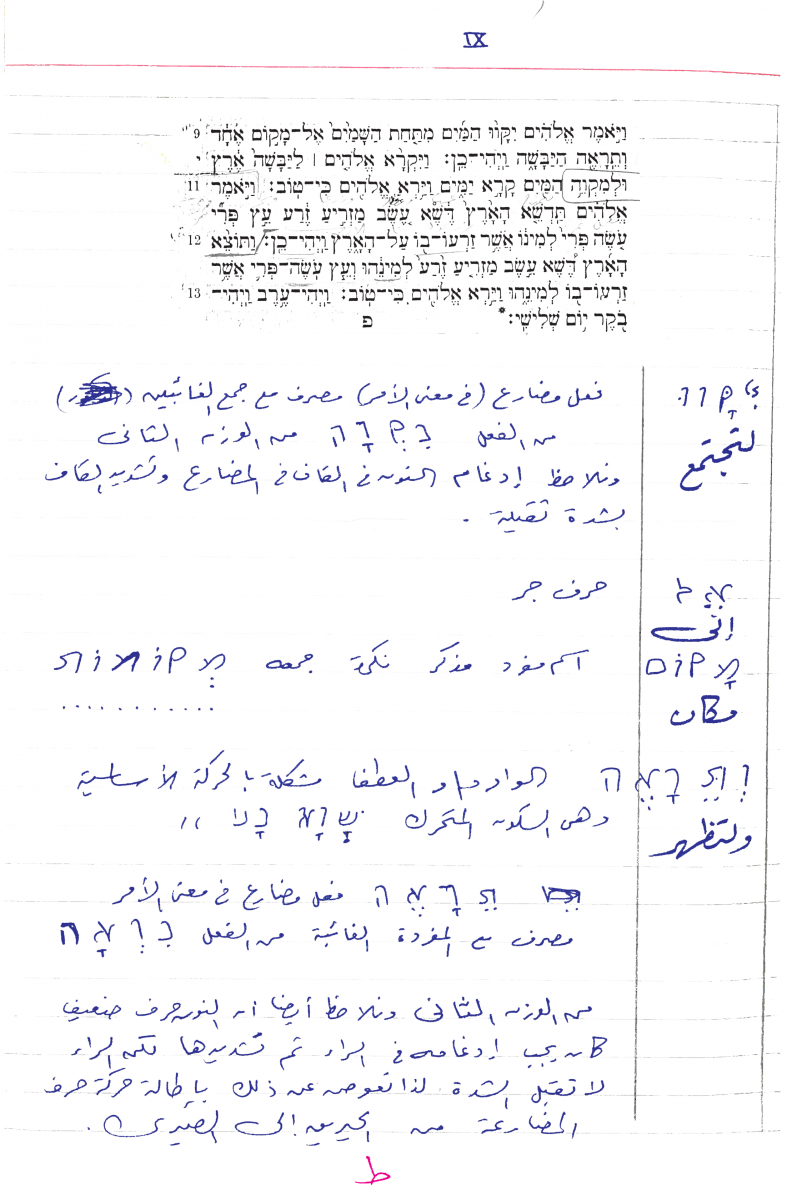 IX
9 וַיֹּאמֶר אֱלֹהִים יִקָּווּ הַמַּיִם מִתַּחַת הַשָּׁמַיִם אֶל־מָקוֹם אֶחָד
וְתֵרָאֶה הַיַּבָּשָׁה וַיְהִי־כֵן׃ וַיִּקְרָא אֱלֹהִים ׀ לַיַּבָּשָׁה אֶרֶץ
11 וּלְמִקְוֵה הַמַּיִם קָרָא יַמִּים וַיַּרְא אֱלֹהִים כִּי־טוֹב׃ וַיֹּאמֶר
אֱלֹהִים תַּדְשֵׁא הָאָרֶץ דֶּשֶׁא עֵשֶׂב מַזְרִיעַ זֶרַע עֵץ פְּרִי
12 עֹשֶׂה פְּרִי לְמִינוֹ אֲשֶׁר זַרְעוֹ־בוֹ עַל־הָאָרֶץ וַיְהִי־כֵן׃ וַתּוֹצֵא
הָאָרֶץ דֶּשֶׁא עֵשֶׂב מַזְרִיעַ זֶרַע לְמִינֵהוּ וְעֵץ עֹשֶׂה־פְּרִי אֲשֶׁר
13 זַרְעוֹ־בוֹ לְמִינֵהוּ וַיַּרְא אֱלֹהִים כִּי־טוֹב׃ וַיְהִי־עֶרֶב וַיְהִי־
בֹקֶר יוֹם שְׁלִישִׁי׃ פ
יִקָּווּ فعل مضارع (في معنى الأمر) مصرف مع جمع الغائبين
لتجتمع من الفعل נִקְוָה من الوزن الثاني
ونلاحظ إدغام النون في القاف في المضارع وتشديد القاف
بشدة ثقيلة .
אֶל حرف جر
إلى
מָקוֹם اسم مفرد مذكر نكرة جمعه מְקוֹמוֹת
مكان ............
וְתֵרָאֶה الواو واو العطف مشكلة بالحركة الأساسية
ولتظهر وهى السكون المتحرك שְׁוָא נָע ،،
תֵּרָאֶה فعل مضارع في معنى الأمر
مصرف مع المفردة الغائبة من الفعل נִרְאָה
من الوزن الثانى ونلاحظ أيضا أن النون حرف ضعيف
كان يجب إدغامه في الراء ثم تشديدها لكن الراء
لا تقبل الشدة لذا نعوض عن ذلك بإطالة حركة حرف
المضارعة من الحيريق إلى الصيرى .
ط